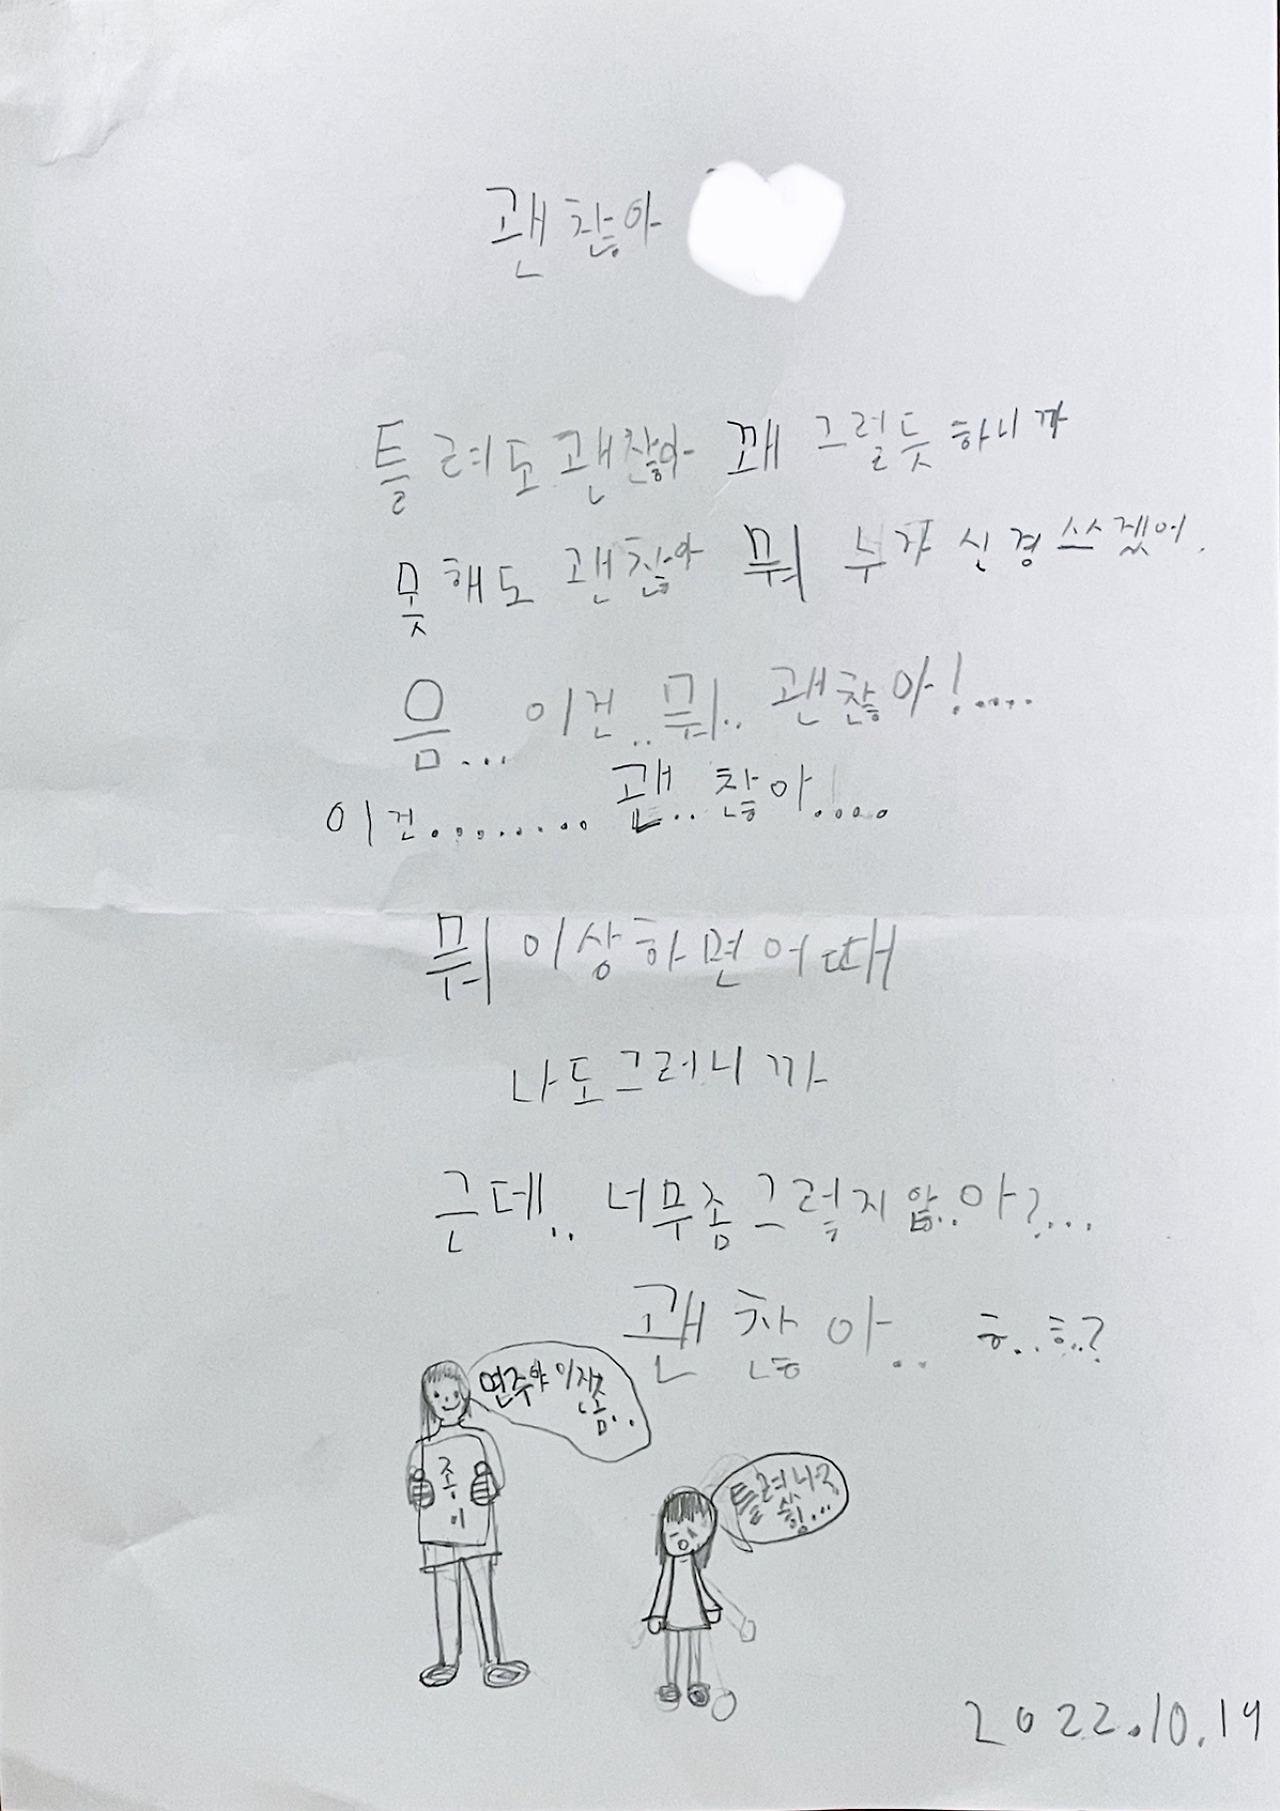 괜찮아
틀려도괜찮아 꽤 그럴듯하니까
못해도 괜찮아 뭐 누가 신경쓰겠어.
음... 이건..뭐.. 괜찮아!....
이건........ 괜..찮아!....
뭐이상하면어때
나도그러니까
근데.. 너무좀그렇지않..아?...
괜찮아.. ㅎ..ㅎ..?
연주야 이건
좀..
종
이
틀렸나용
힝...
2022.10.19